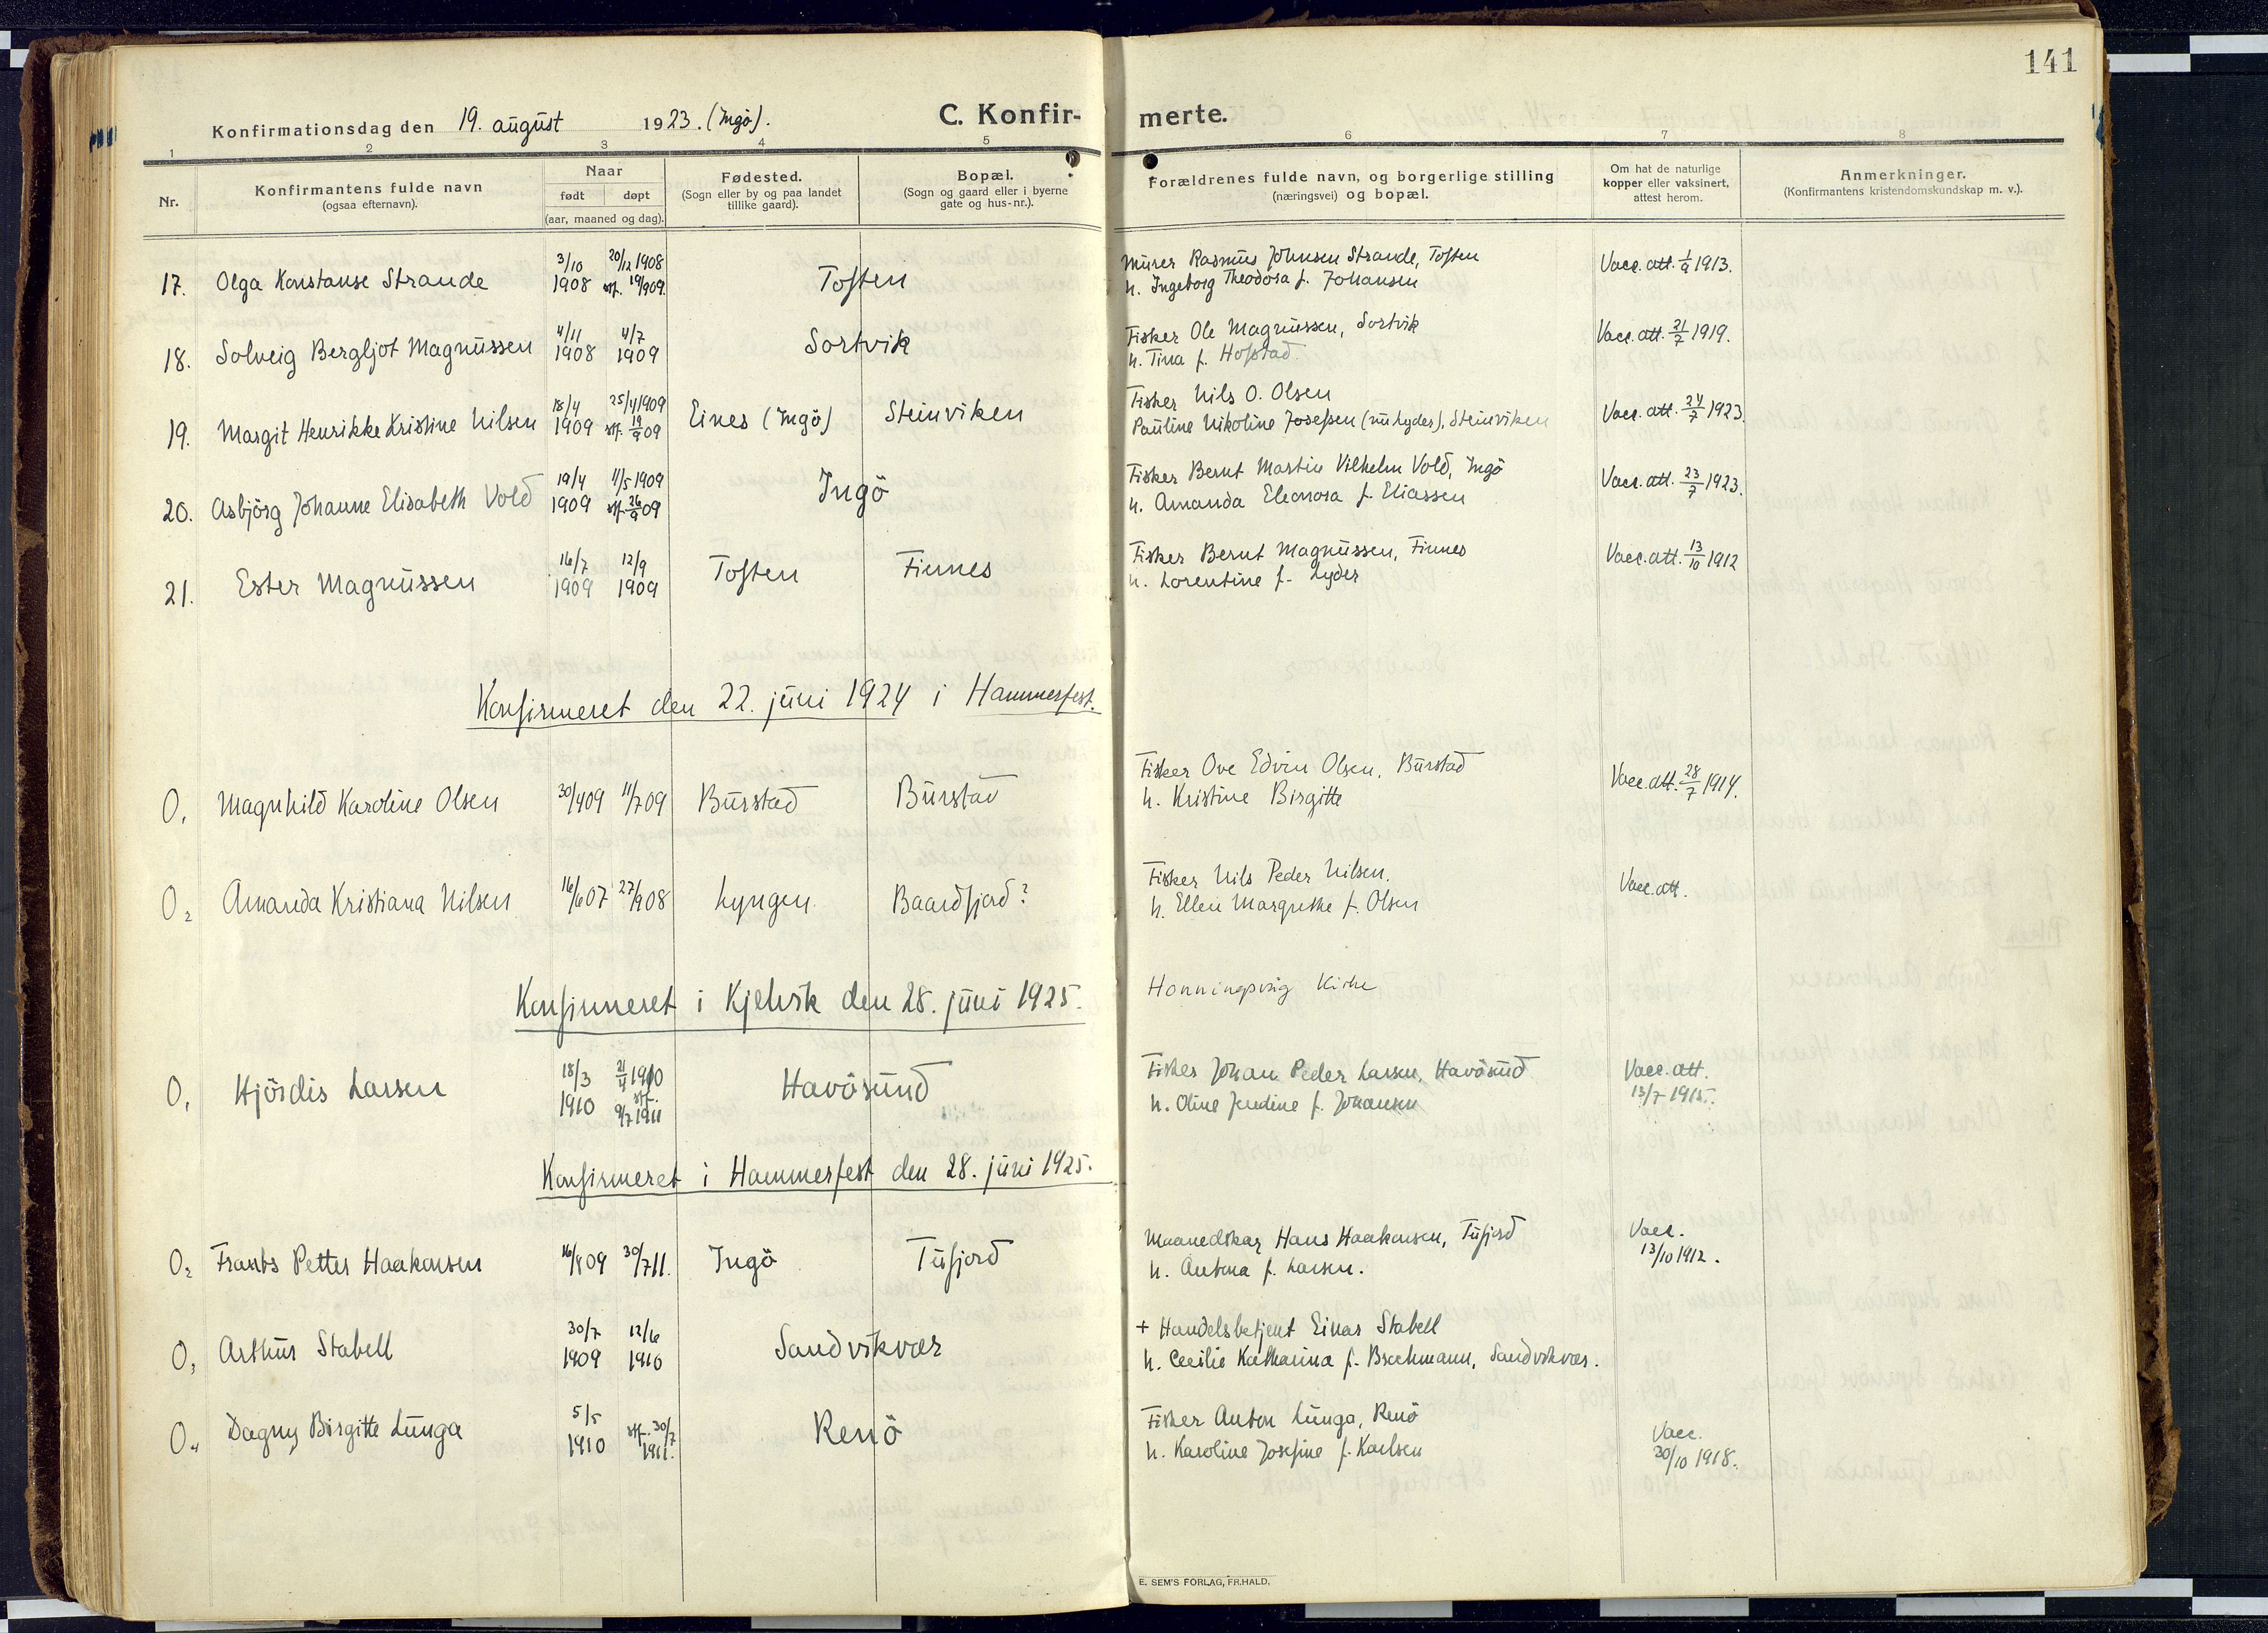 141
Konfirmationsdag den 19. august 1923. (Ingö).
C. Konfir-
merte.
1 2 3 4 5 6 7 8
Nr.
Konfirmantens fulde navn
(ogsaa efternavn).
Naar
født døpt
(aar, maaned og dag).
Fødested.
(Sogn eller by og paa landet
tillike gaard).
Bopæl.
(Sogn og gaard eller i byerne
gate og hus-nr.).
Forældrenes fulde navn, og borgerlige stilling
(næringsvei) og bopæl.
Om hat de naturlige
kopper eller vaksinert,
attest herom.
Anmerkninger.
(Konfirmantens kristendomskundskap m. v.).
3/10 20/12 1908 Murer Rasmus Johnsen Strande, Toften
17. Olga Konstanse Strande 1908 stf. 19/909. Toften h. Ingeborg Theodora f. Johansen Vacc. att. 1/9 1913.
4/11 4/7 Fisker Ole Magnussen, Sortvik
18. Solveig Bergljot Magnussen 1908 1909 Sortvik h. Tina f. Hofstad. Vacc. att. 21/7 1919.
18/4 25/4 1909 Fisker Nils O. Olsen
19. Margit Henrikke Kristine Nilsen 1909 stf. 19/9 09 Eines (Ingö) Steinviken Pauline Nikoline Josefsen (nu Lyder), Steinviken Vacc. att. 24/7 1923.
19/4 11/5 1909 Fisker Bernt Martin Vilhelm Vold, Ingö
20. Asbjörg Johanne Elisabeth Vold 1909 stf. 26/9 09 Ingö h. Amanda Eleonora f. Eliassen Vacc. att. 23/7 1923.
16/7 12/9 Fisker Bernt Magnussen, Finnes
21. Ester Magnussen 1909 1909 Toften Finnes h. Lorentine f. Lyder Vacc. att. 13/10 1912
Konfirmeret den 22. juni 1924 i Hammerfest.
Fisker Ove Edvin Olsen, Burstad
0, Magnhild Karoline Olsen 30/4 09 11/7 09 Burstad Burstad h. Kristine Birgitte Vacc. att. 28/7 1914.
Fisker Nils Peder Nilsen.
0₂ Amanda Kristiana Nilsen 16/6 07 27/9 08 Lyngen Baardfjord? h. Ellen Margrethe f. Olsen Vacc. att.
Konfirmeret i Kjelvik den 28. juni 1925. Honningsvåg Kirke
18/3 21/4 1910 Fisker Johan Peder Larsen, Havösund Vacc. att.
0, Hjördis Larsen 1910 stf. 9/7 1911 Havösund h. Oline f. Johansen 13/7 1915.
Konfirmeret i Hammerfest den 28. juni 1925.
Maanedskar Hans Haakonsen, Tufjord Vacc.
0₂ Frants Petter Haakonsen 16/8 09 30/7 11. Ingö Tufjord h. Antona f. Larsen. 13/10 1912.
30/7 12/6 + Handelsbetjent Einar Stabell
0₃ Arthur Stabell 1909 1910 Sandvikvær h. Cecilie Katharina f. Brochmann, Sandvikvær.
5/5 stf. 30/7 Fisker Anton Lunga, Renö Vacc.
0₄ Dagny Birgitte Lunga 1910 1911. Renö h. Karoline Josefine f. Karlsen 30/10 1918.
E. SEM'S FORLAG, FR.HALD.